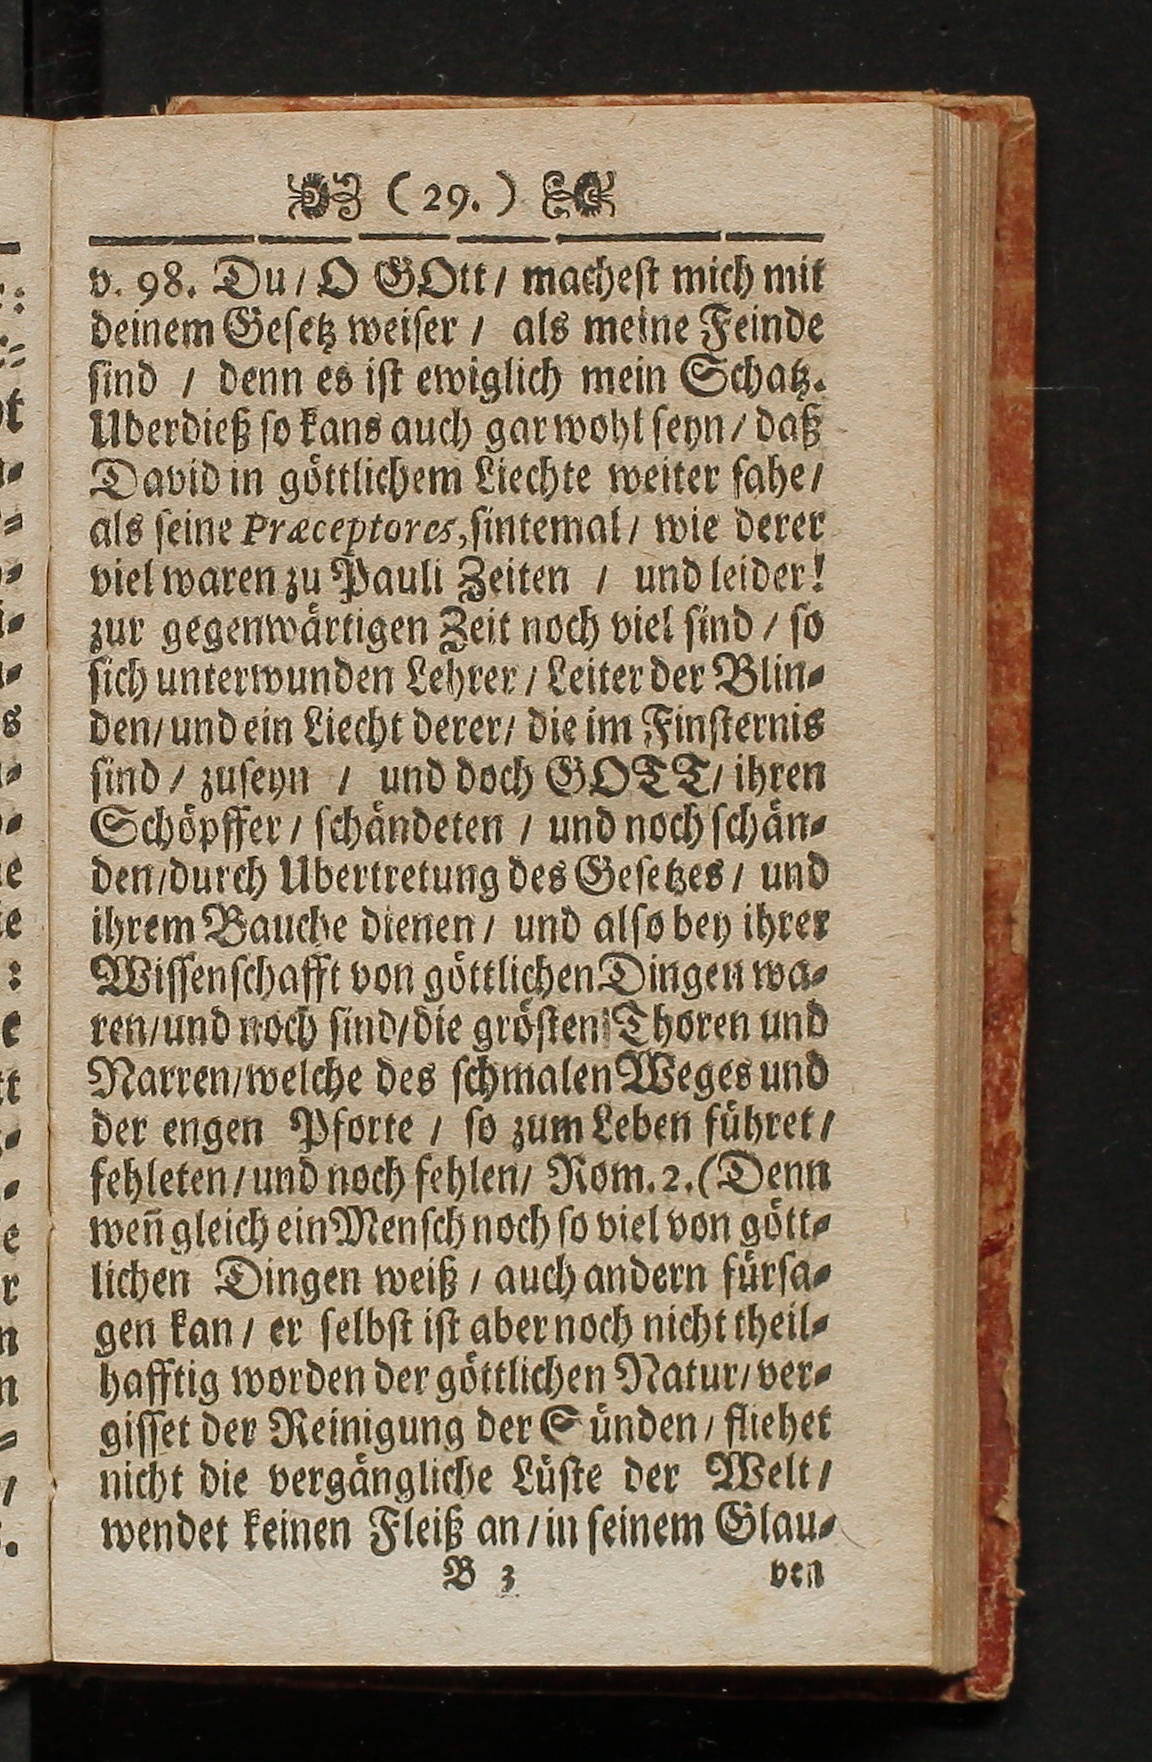 ( 29. )
v. 98. Du / O GOtt / machest mich mit
deinem Gesetz weiser / als meine Feinde
sind / denn es ist ewiglich mein Schatz.
Uberdieß so kans auch gar wohl seyn / daß
David in göttlichem Liechte weiter sahe /
als seine Præceptores, sintemal / wie derer
viel waren zu Pauli Zeiten / und leider!
zur gegenwärtigen Zeit noch viel sind / so
sich unterwunden Lehrer / Leiter der Blin-
den / und ein Liecht derer / die im Finsternis
sind / zuseyn / und doch GOTT / ihren
Schöpffer / schändeten / und noch schän-
den / durch Ubertretung des Gesetzes / und
ihrem Bauche dienen / und also bey ihrer
Wissenschafft von göttlichen Dingen wa-
ren / und noch sind / die grösten Thoren und
Narren / welche des schmalen Weges und
der engen Pforte / so zum Leben führet /
fehleten / und noch fehlen / Rom. 2. (Denn
weñ gleich ein Mensch noch so viel von gött-
lichen Dingen weiß / auch andern fürsa-
gen kan / er selbst ist aber noch nicht theil-
hafftig worden der göttlichen Natur / ver-
gisset der Reinigung der Sünden / fliehet
nicht die vergängliche Lüste der Welt /
wendet keinen Fleiß an / in seinem Glau-
B 3 ben